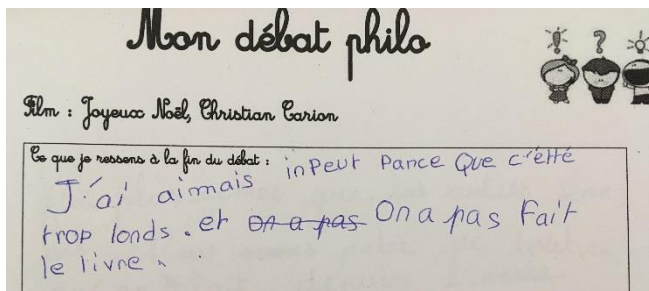 Mon débat philo
! ?
Film : Joyeux Noël, Christian Carion
Ce que je ressens à la fin du débat :
J'ai aimais inpeut parce Que c'étté
trop londs. et on a pas On a pas Fait
le livre.